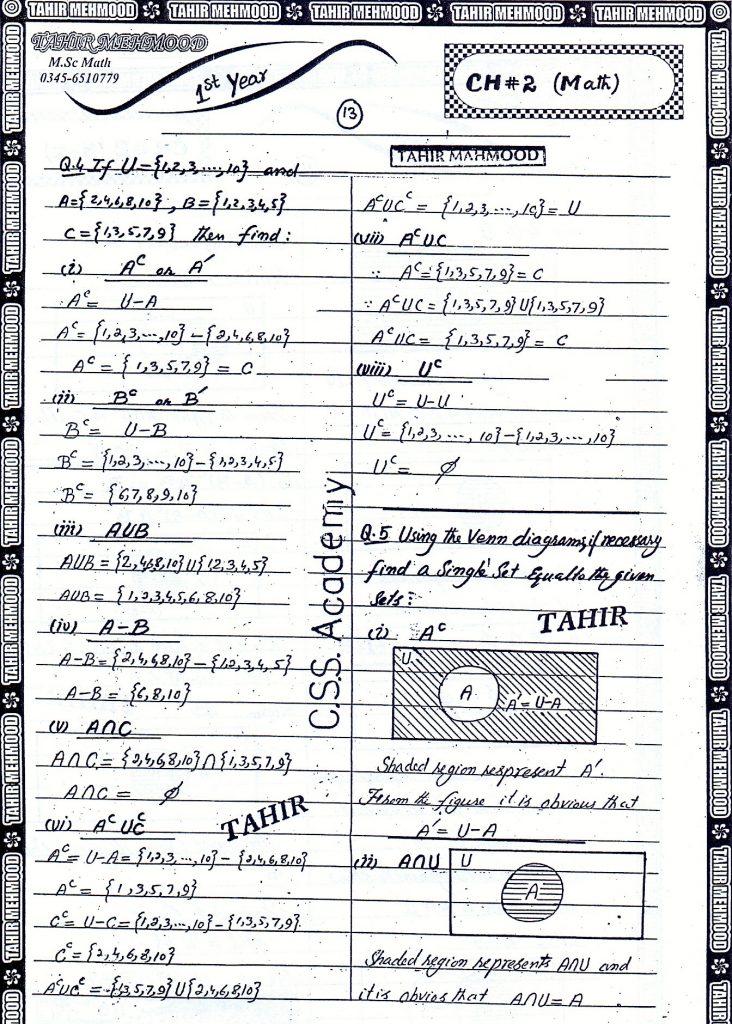 TAHIR MEHMOOD TAHIR MEHMOOD TAHIR MEHMOOD TAHIR MEHMOOD TAHIR MEHMOOD
TAHIR MEHMOOD
M.Sc Math
0345-6510779
1st Year
CH#2 (Math)
13
TAHIR MAHMOOD
Q.4 If U={1,2,3,...,10} and
A={2,4,6,8,10}, B={1,2,3,4,5}
C={1,3,5,7,9} then find:
(i) A^c or A′
A^c= U-A
A^c= {1,2,3,...,10} - {2,4,6,8,10}
A^c = {1,3,5,7,9} = C
(ii) B^c or B′
B^c= U-B
B^c = {1,2,3,...,10} - {1,2,3,4,5}
B^c = {6,7,8,9,10}
(iii) A∪B
A∪B = {2,4,6,8,10}∪{1,2,3,4,5}
A∪B = {1,2,3,4,5,6,8,10}
(iv) A-B
A-B = {2,4,6,8,10} - {1,2,3,4,5}
A-B = {6,8,10}
(v) A∩C
A∩C = {2,4,6,8,10}∩{1,3,5,7,9}
A∩C = ∅
(vi) A^c∪C^c
TAHIR
A^c = U-A = {1,2,3,...,10} - {2,4,6,8,10}
A^c = {1,3,5,7,9}
C^c = U-C = {1,2,3,...,10} - {1,3,5,7,9}
C^c = {2,4,6,8,10}
A^c∪C^c = {1,3,5,7,9}∪{2,4,6,8,10}
C.S.S. Academy
A^c∪C^c = {1,2,3,...,10} = U
(vii) A^c∪C
∵ A^c = {1,3,5,7,9} = C
∵ A^c∪C = {1,3,5,7,9}∪{1,3,5,7,9}
A^c∪C = {1,3,5,7,9} = C
(viii) U^c
U^c = U-U
U^c = {1,2,3,...,10} - {1,2,3,...,10}
U^c = ∅
Q.5 Using the Venn diagrams, if necessary
find a Single Set Equal to the given
Sets:
TAHIR
(i) A^c
U
A
A′ = U-A
Shaded region respresent A′.
From the figure it is obvious that
A′ = U-A
(ii) A∩U
U
A
Shaded region represents A∩U and
it is obvios that A∩U = A